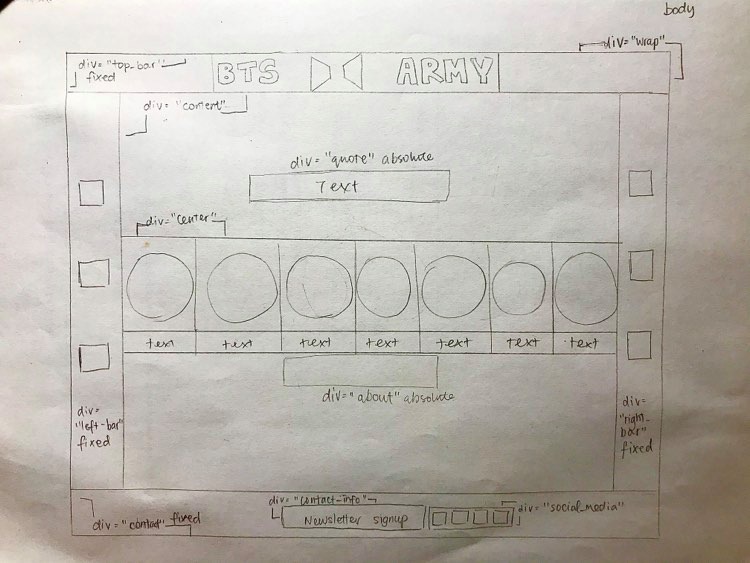 body
div="wrap"
div="top-bar"
fixed
BTS ARMY
div="content"
div="quote" absolute
Text
div="center"
text text text text text text text
div="about" absolute
div=
"left-bar"
fixed
div=
"right-
bar"
fixed
div="contact-info"
div="contact" fixed
Newsletter signup
div="social_media"